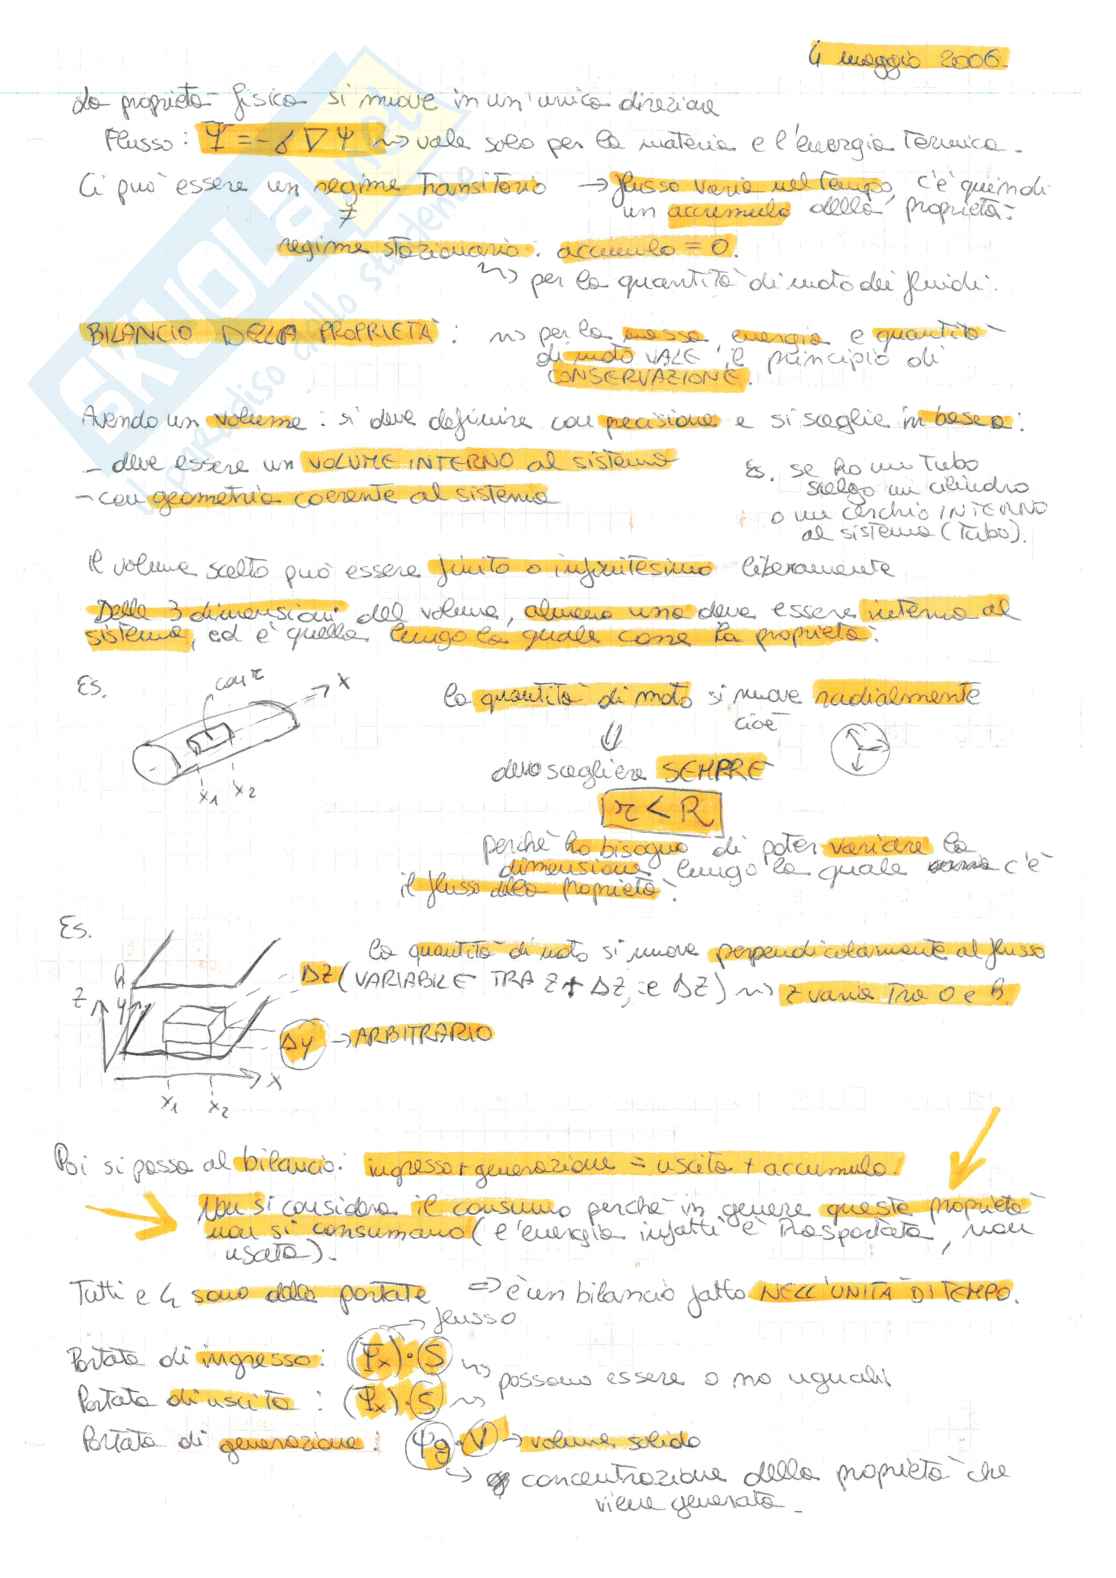 4 maggio 2006.
La proprietà fisica si muove in un'unica direzione
Flusso: Ψ = -δ ∇ Ψ ~> vale solo per la materia e l'energia termica.
Ci può essere un regime transitorio → flusso varia nel tempo, c'è quindi
un accumulo della proprietà.
≠
regime stazionario: accumulo = 0.
~> per la quantità di moto dei fluidi.
BILANCIO DELLA PROPRIETÀ: ~> per la massa energia e quantità
di moto VALE il principio di
CONSERVAZIONE.
Avendo un volume: si deve definire con precisione e si sceglie in base a:
- deve essere un VOLUME INTERNO al sistema
- con geometria coerente al sistema
Es. se ho un tubo
scelgo un cilindro
o un cerchio INTERNO
al sistema (tubo).
Il volume scelto può essere finito o infinitesimo liberamente
Delle 3 dimensioni del volume, almeno una deve essere interna al
sistema, ed è quella lungo la quale corre la proprietà.
Es.
con r
x
x1 x2
la quantità di moto si muove radialmente
cioè
⇓
devo scegliere SEMPRE
r < R
perché ho bisogno di poter variare la
dimensione lungo la quale c'è
il flusso della proprietà.
Es.
la quantità di moto si muove perpendicolarmente al flusso
ΔZ (VARIABILE TRA Z + ΔZ, e ΔZ) ~> z varia tra 0 e h.
h
Z
y
Δy → ARBITRARIO
x
x1 x2
Poi si passa al bilancio: ingresso + generazione = uscita + accumulo.
Non si considera il consumo perché in genere queste proprietà
non si consumano (e l'energia infatti è trasportata, non
usata).
Tutti e 4 sono delle portate => è un bilancio fatto NELL'UNITÀ DI TEMPO.
→ flusso
Portata di ingresso: (Ψx)·(S) ~>
possono essere o no uguali
Portata di uscita: (Ψx)·(S) ~>
Portata di generazione: Ψg · V → volume solido
↳ concentrazione della proprietà che
viene generata.
SKUOLA.net
il paradiso dello studente